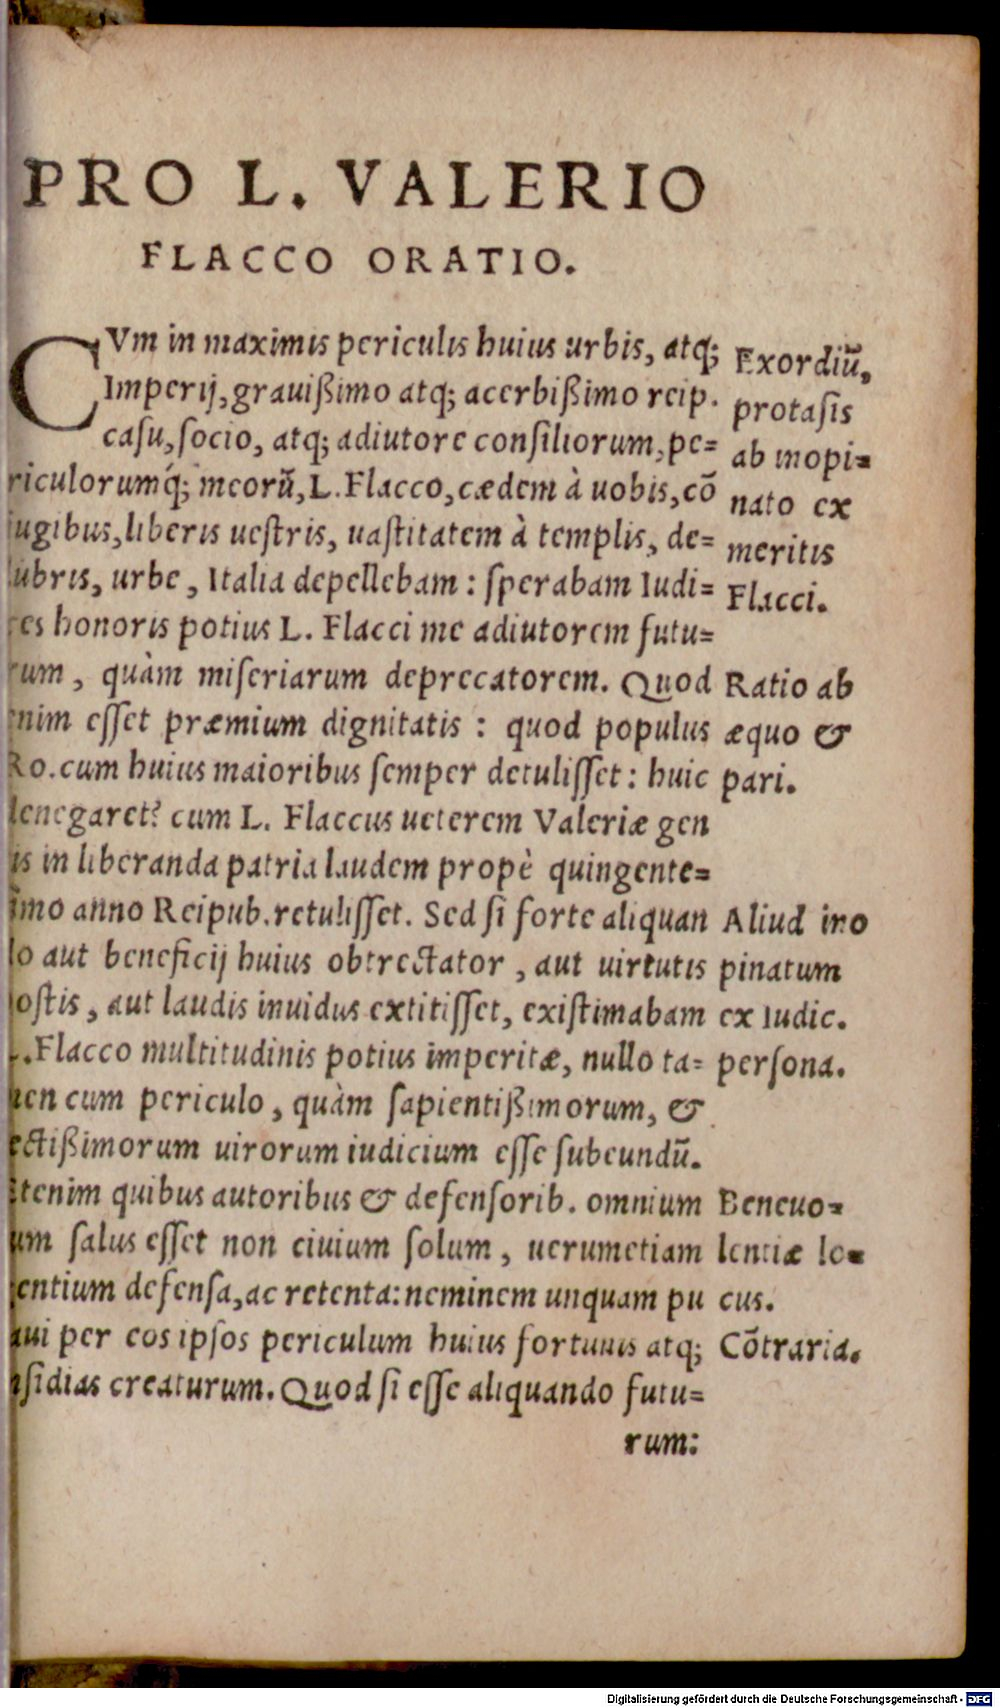 PRO L. VALERIO
FLACCO ORATIO.
CVm in maximis periculis huius urbis, atq;
Imperij, grauißimo atq; acerbißimo reip.
casu, socio, atq; adiutore consiliorum, pe=
riculorumq́; meorũ, L. Flacco, cædem à uobis, cõ
iugibus, liberis uestris, uastitatem à templis, de=
lubris, urbe, Italia depellebam: sperabam Iudi=
ces honoris potius L. Flacci me adiutorem futu=
rum, quàm miseriarum deprecatorem. Quod
enim esset præmium dignitatis: quod populus
Ro. cum huius maioribus semper detulisset: huic
denegaret? cum L. Flaccus ueterem Valeriæ gen
is in liberanda patria laudem propè quingente=
simo anno Reipub. retulisset. Sed si forte aliquan
do aut beneficij huius obtrectator, aut uirtutis
hostis, aut laudis inuidus extitisset, existimabam
L. Flacco multitudinis potius imperitæ, nullo ta=
men cum periculo, quàm sapientißimorum, &
lectißimorum uirorum iudicium esse subeundũ.
Etenim quibus autoribus & defensorib. omnium
tum salus esset non ciuium solum, uerumetiam
gentium defensa, ac retenta: neminem unquam pu
taui per eos ipsos periculum huius fortunis atq;
insidias creaturum. Quod si esse aliquando futu=
rum:
Exordiũ,
protasis
ab inopi=
nato ex
meritis
Flacci.
Ratio ab
æquo &
pari.
Aliud ino
pinatum
ex Iudic.
persona.
Beneuo=
lentiæ lo=
cus.
Cõtraria.
Digitalisierung gefördert durch die Deutsche Forschungsgemeinschaft - DFG